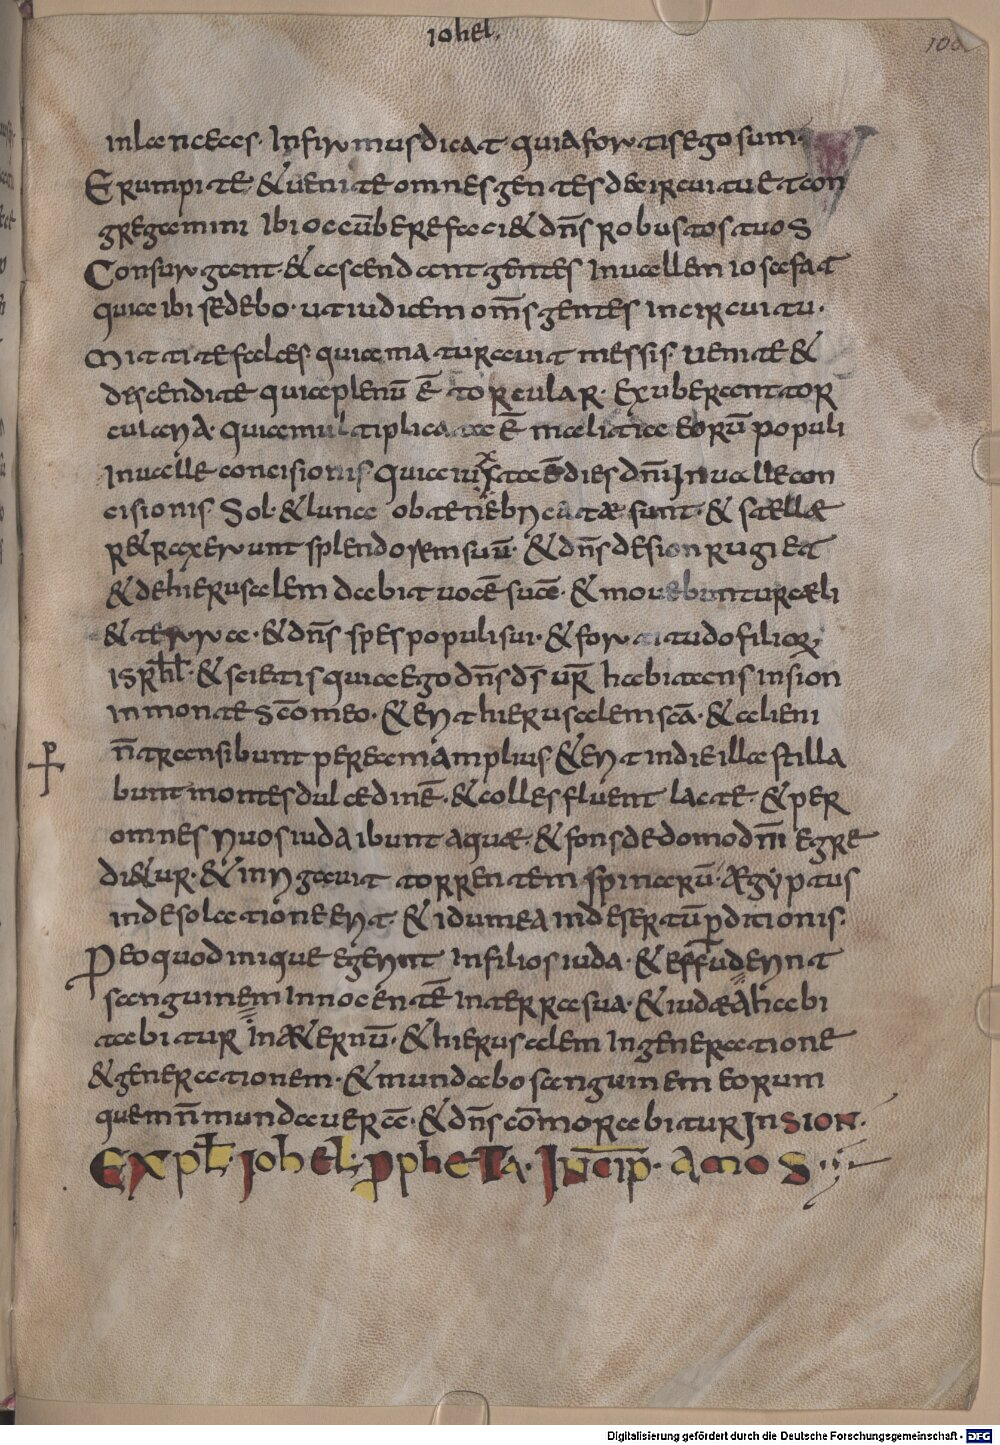 Iohel.
100
in lanceas. Infirmus dicat quia fortis ego sum.
Erumpite & uenite omnes gentes de circuitu et con
gregamini Ibi occūbere faci& dn̄s robustos tuos
Consurgant & ascendant gentes In uallem iosafat
quia ibi sedebo. ut iudicem om̄s gentes in circuitu.
Mittite falces quia maturauit messis. uenite &
discendite quia plenū ē torcular. Exuberant tor
cularia. quia multiplicata ē malitia eorū populi
In ualle concisionis quia iuxta ē dies dn̄i In ualle con
cisionis Sol & luna obtenebricatæ sunt & stellæ
r&raxerunt splendorem suū. & dn̄s de sion rugiet
& de hierusalem dabit uocē suā. & mouebuntur cæli
& terra. & dn̄s spes populi sui. & fortitudo filioꝝ
isrl̄. & scietis quia ego dn̄s ds̄ ur̄ habitans in sion
in monte sc̄o meo. & erit hierusalem sc̄a. & alieni
n̄ transibunt per eam amplius & erit in die illa stilla
bunt montes dulcedinē. & colles fluent lacte. & per
omnes riuos iuda ibunt aquæ. & fons de domo dn̄i egre
di&ur. & inrigauit torrentem spinarū. Ægyptus
in desolatione erit. & idumea in desertū ꝑditionis.
P eo quod inique egerint In filios iuda. & effuderint
sanguinem Innocentē in terra sua. & iudæa habi
tabitur In æ&ernū. & hierusalem In generatione
& generationem. & mundabo sanguinem eorum
quem n̄ mundauerā. & dn̄s cōmorabitur In sion.
Expl̄ Johel. ppheta. Incip̄. Amos
Digitalisierung gefördert durch die Deutsche Forschungsgemeinschaft - DFG